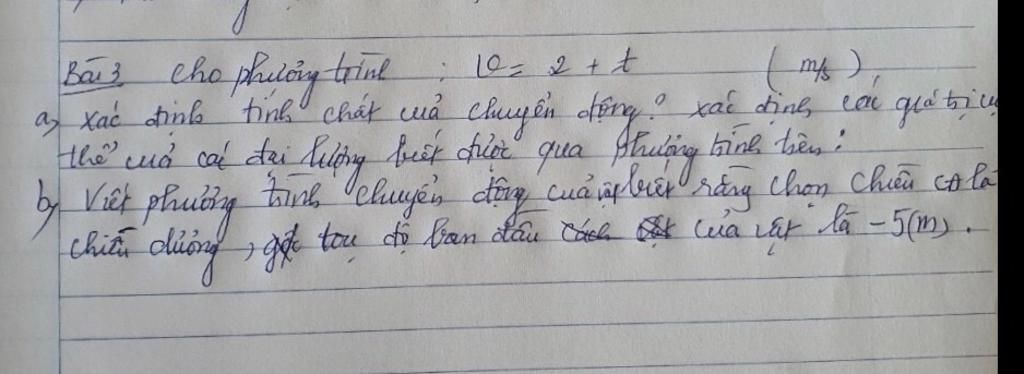 Bài 3 Cho phương trình : v = 2 + t (m/s),
a, Xác định tính chất của chuyển động? xác định các giá trị cụ
thể của các đại lượng biết được qua phương trình trên?
b, Viết phương trình chuyển động của vật biết rằng chọn chiều CĐ là
chiều dương, toạ độ ban đầu của vật là -5(m).